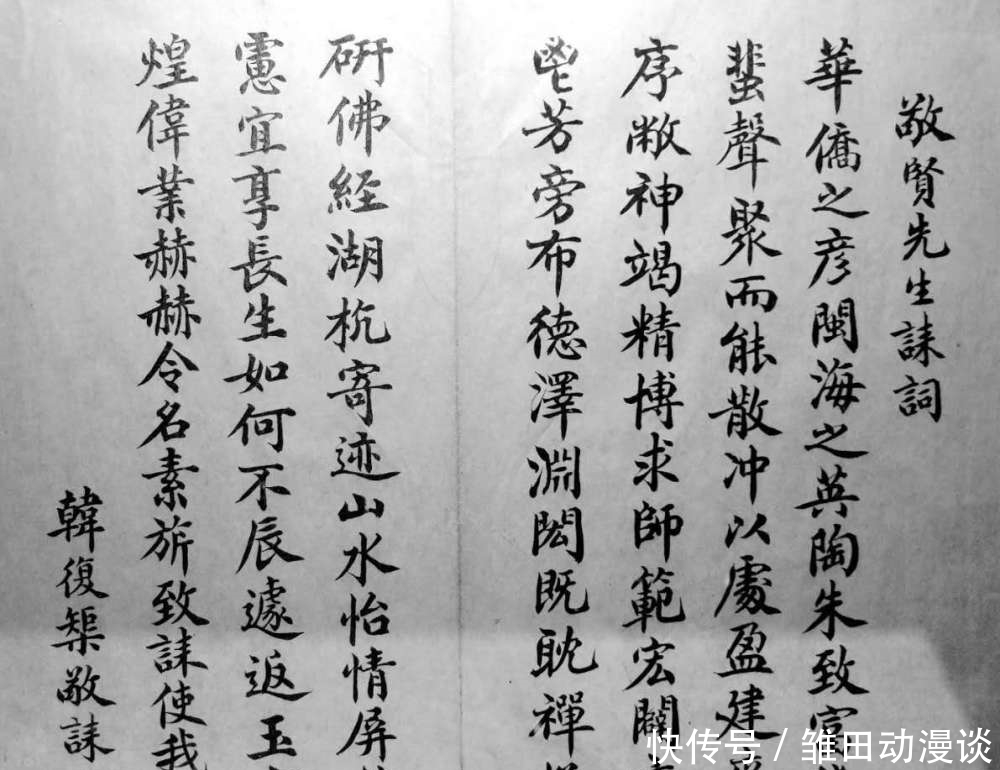 敬賢先生誄詞
華僑之彥閩海之英陶朱致富
蜚聲聚而能散冲以處盈建
序敝神竭精博求師範宏闢
鬯芳旁布德澤淵閎既耽禪
研佛經湖杭寄迹山水怡情屏
憲宜享長生如何不辰遽返玉
煌偉業赫赫令名素旂致誄使我
韓復榘敬誄
快传号 / 雏田动漫谈